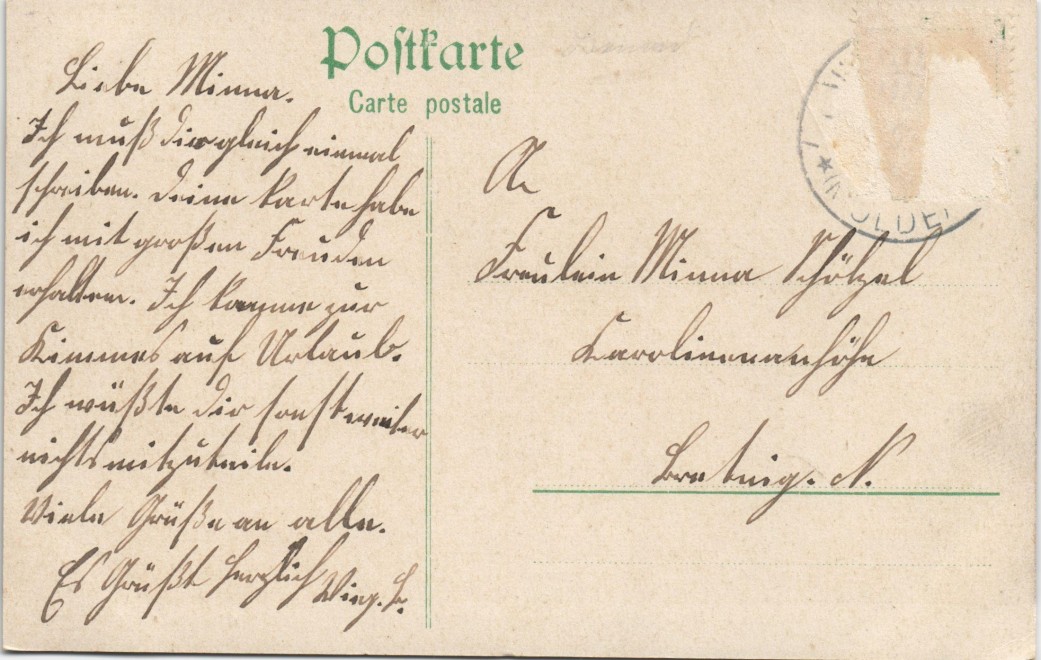 Postkarte
Carte postale
Liebe Minna.
Ich muß dir gleich einmal
schreiben. Deine Karte habe
ich mit großen Freuden
erhalten. Ich komme zur
Kirmes auf Urlaub.
Ich wüßte dir sonst weiter
nichts mitzuteiln.
Viele Grüße an alle.
Es Grüßt herzlich
An
Freulein Minna Schölzel
Karolinenanhöhe
Bretnig. N.
OLDE